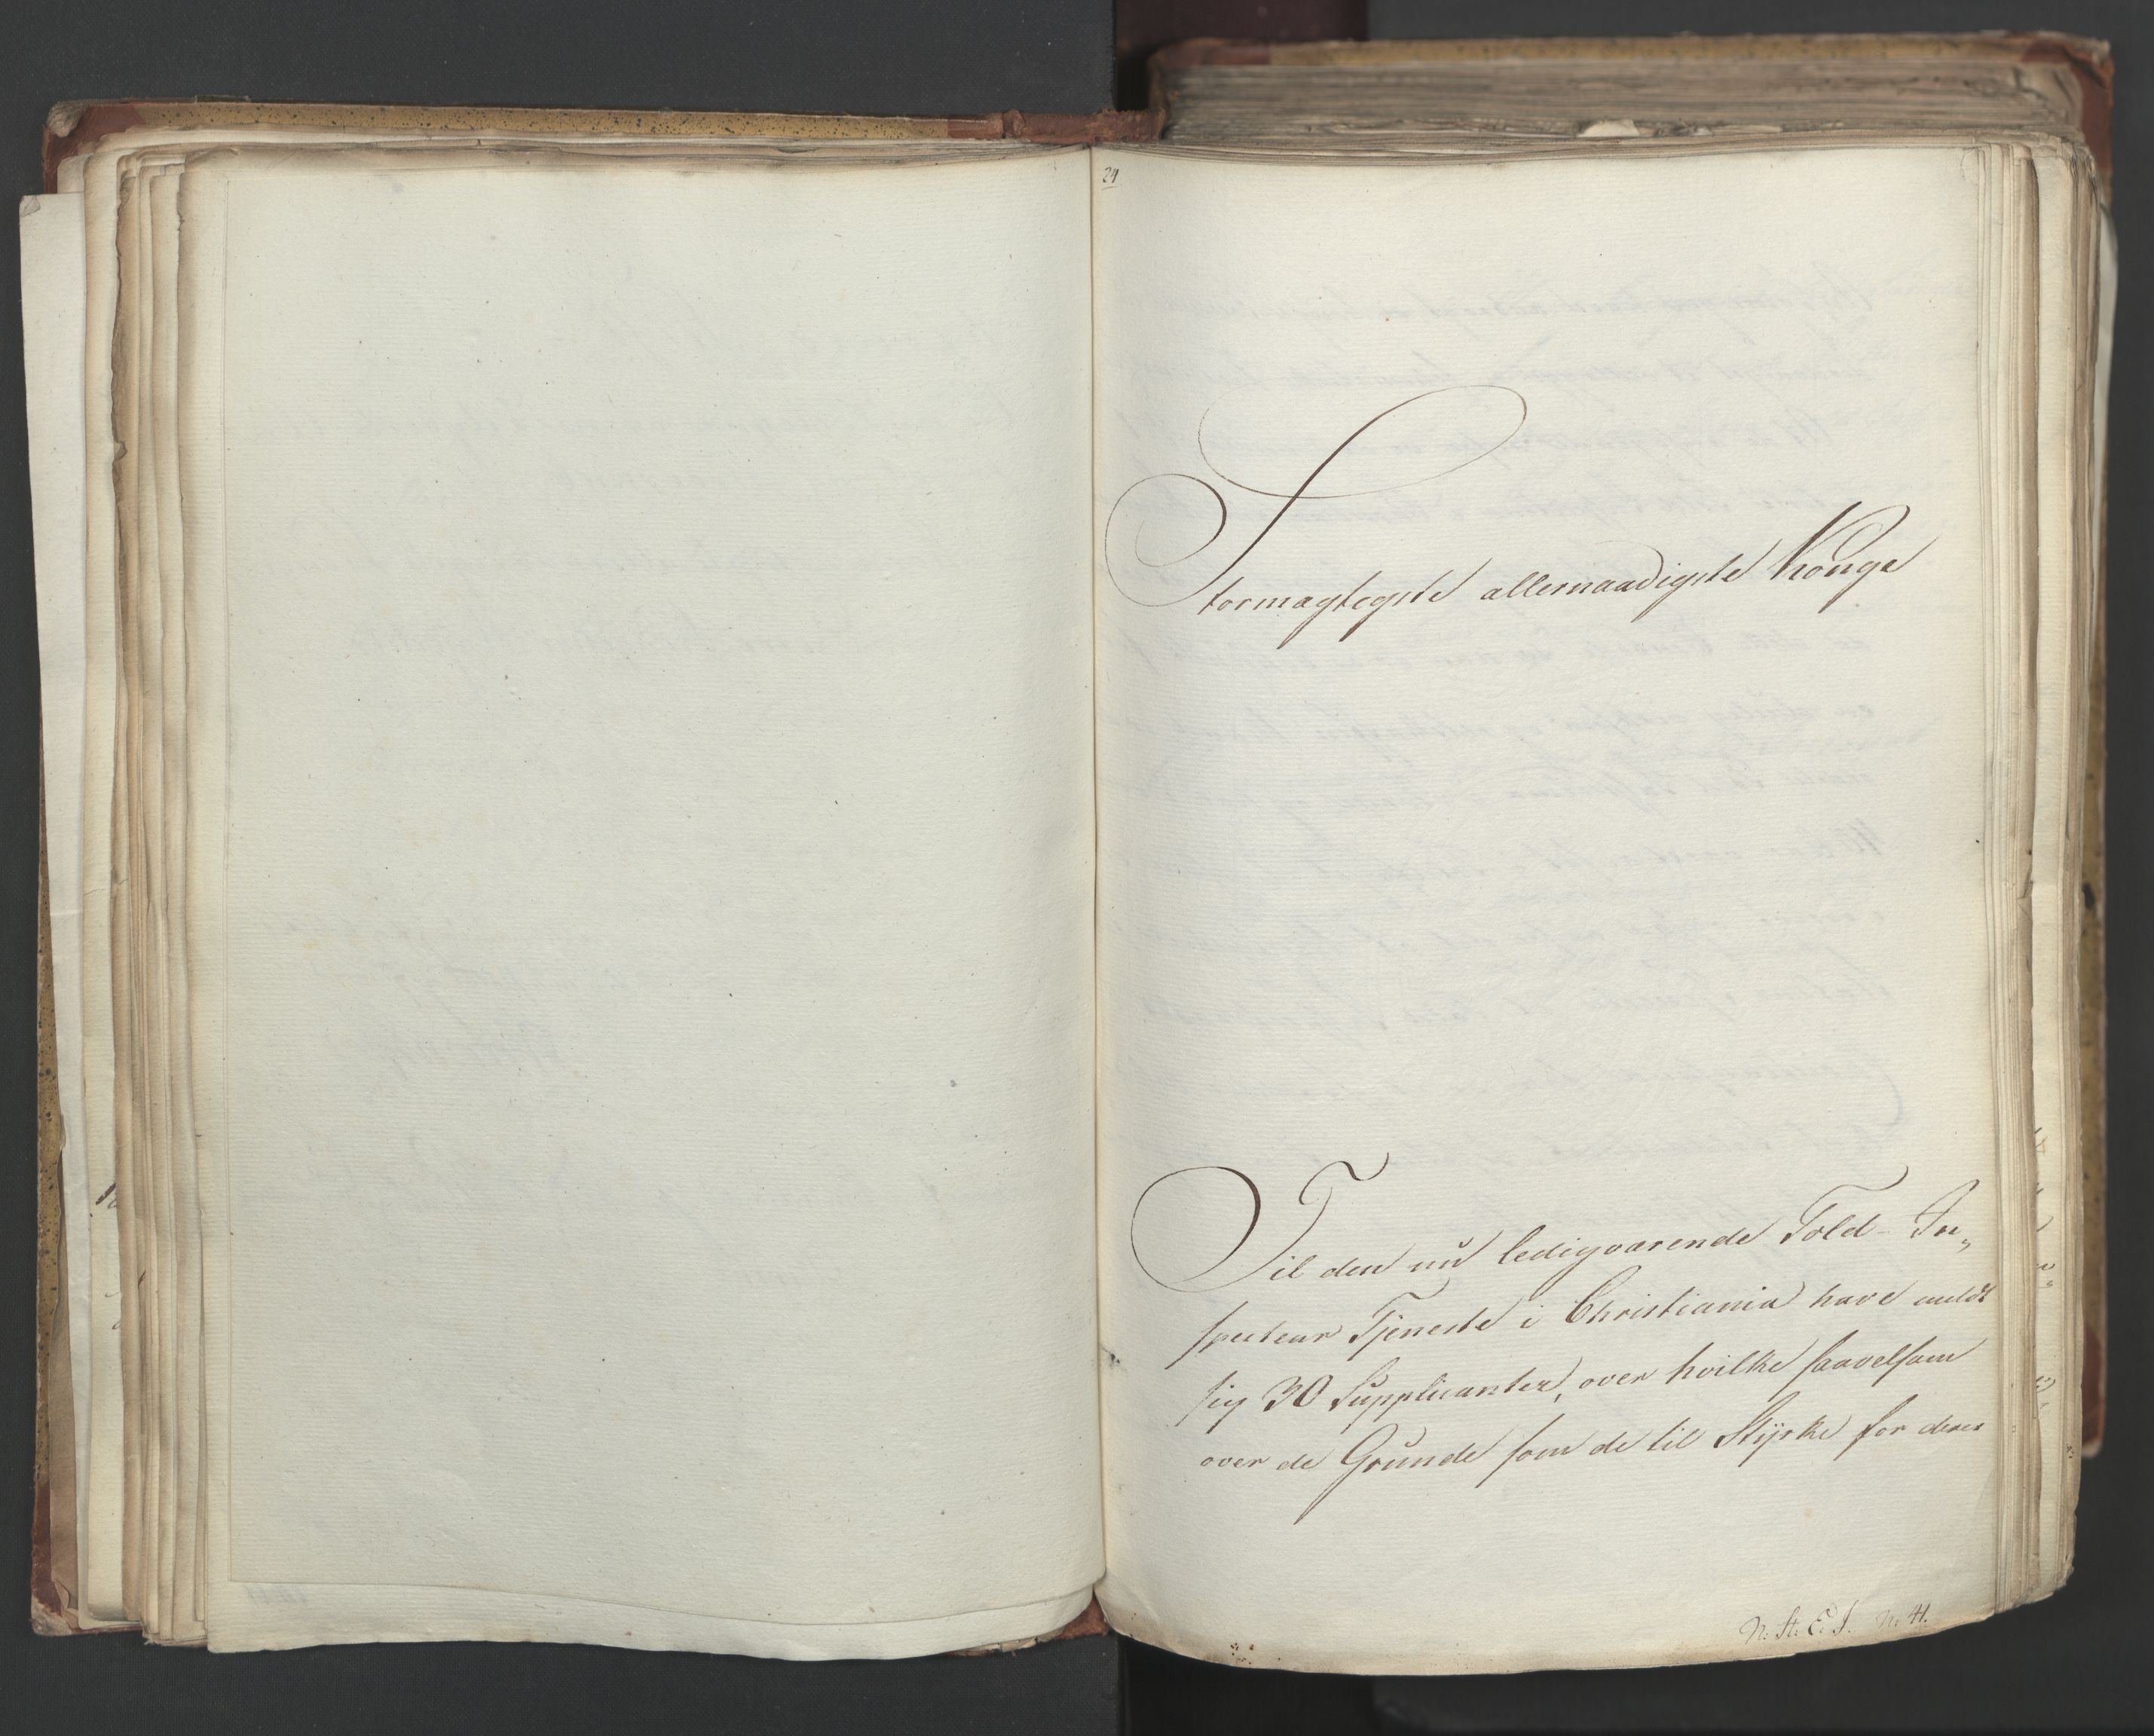 24
Stormagtigste allernaadigste Konge
Til den nu ledigvarende Told-In„
specteur Tjeneste i Christiania have meldt
sig 30 Supplicanter, over hvilke saavelsom
over de Grunde som de til Styrke for deres
N. St. E. J. N. 41.